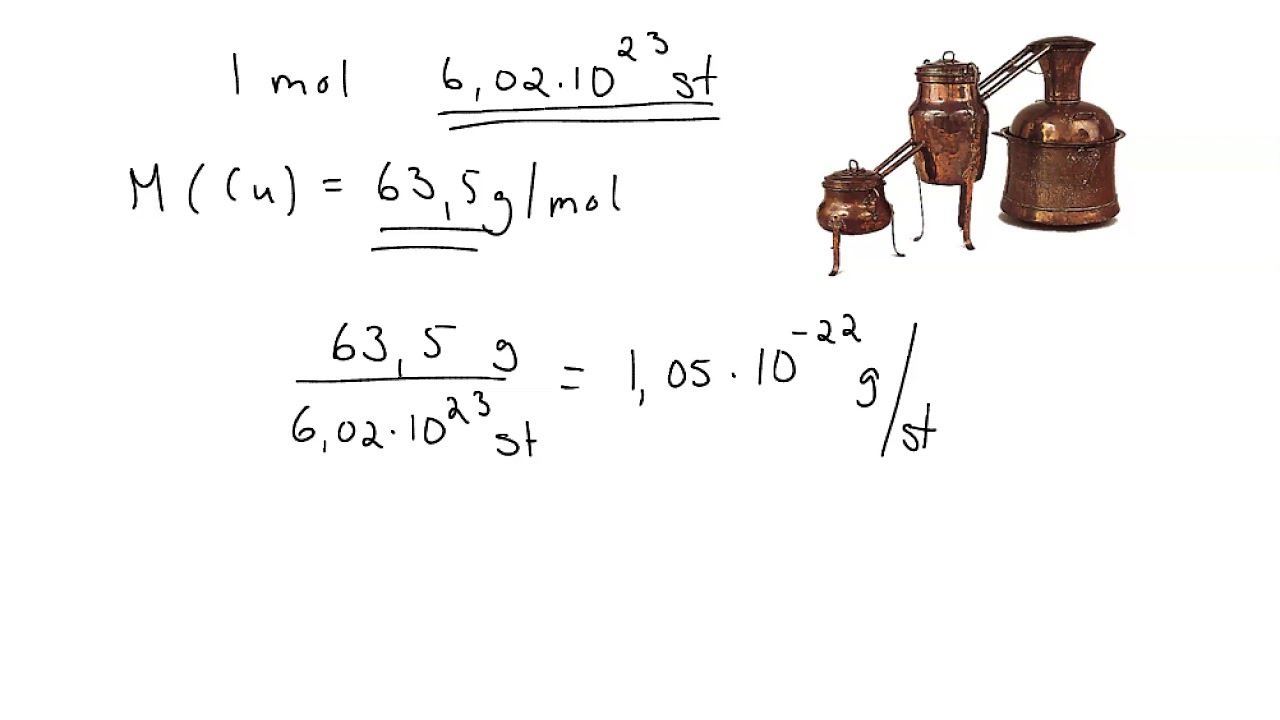 1 mol 6,02·10²³ st
M(Cu) = 63,5g/mol
63,5 g
= 1,05·10⁻²² g/st
6,02·10²³ st